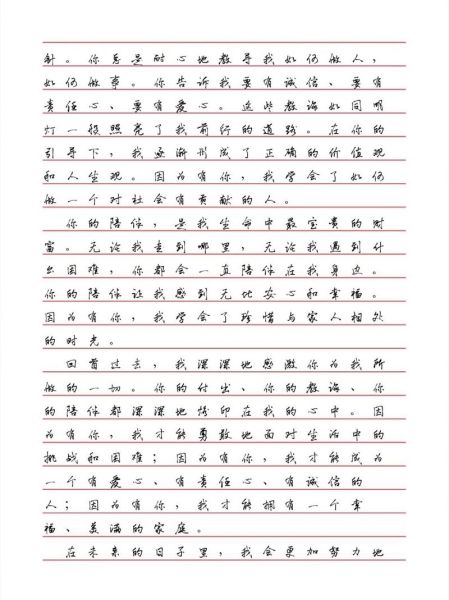 针。你总是耐心地教导我如何做人，
如何做事。你告诉我要有诚信、要有
责任心、要有爱心。这些教诲如同明
灯一般照亮了我前行的道路。在你的
引导下，我逐渐形成了正确的价值观
和人生观。因为有你，我学会了如何
做一个对社会有贡献的人。
你的陪伴，是我生命中最宝贵的财
富。无论我走到哪里，无论我遇到什
么困难，你都会一直陪伴在我身边。
你的陪伴让我感到无比安心和幸福。
因为有你，我学会了珍惜与家人相处
的时光。
回首过去，我深深地感激你为我所
做的一切。你的付出、你的教诲、你
的陪伴都深深地烙印在我的心中。因
为有你，我才能勇敢地面对生活中的
挑战和困难；因为有你，我才能成为
一个有爱心、有责任心、有诚信的
人；因为有你，我才能拥有一个幸
福、美满的家庭。
在未来的日子里，我会更加努力地